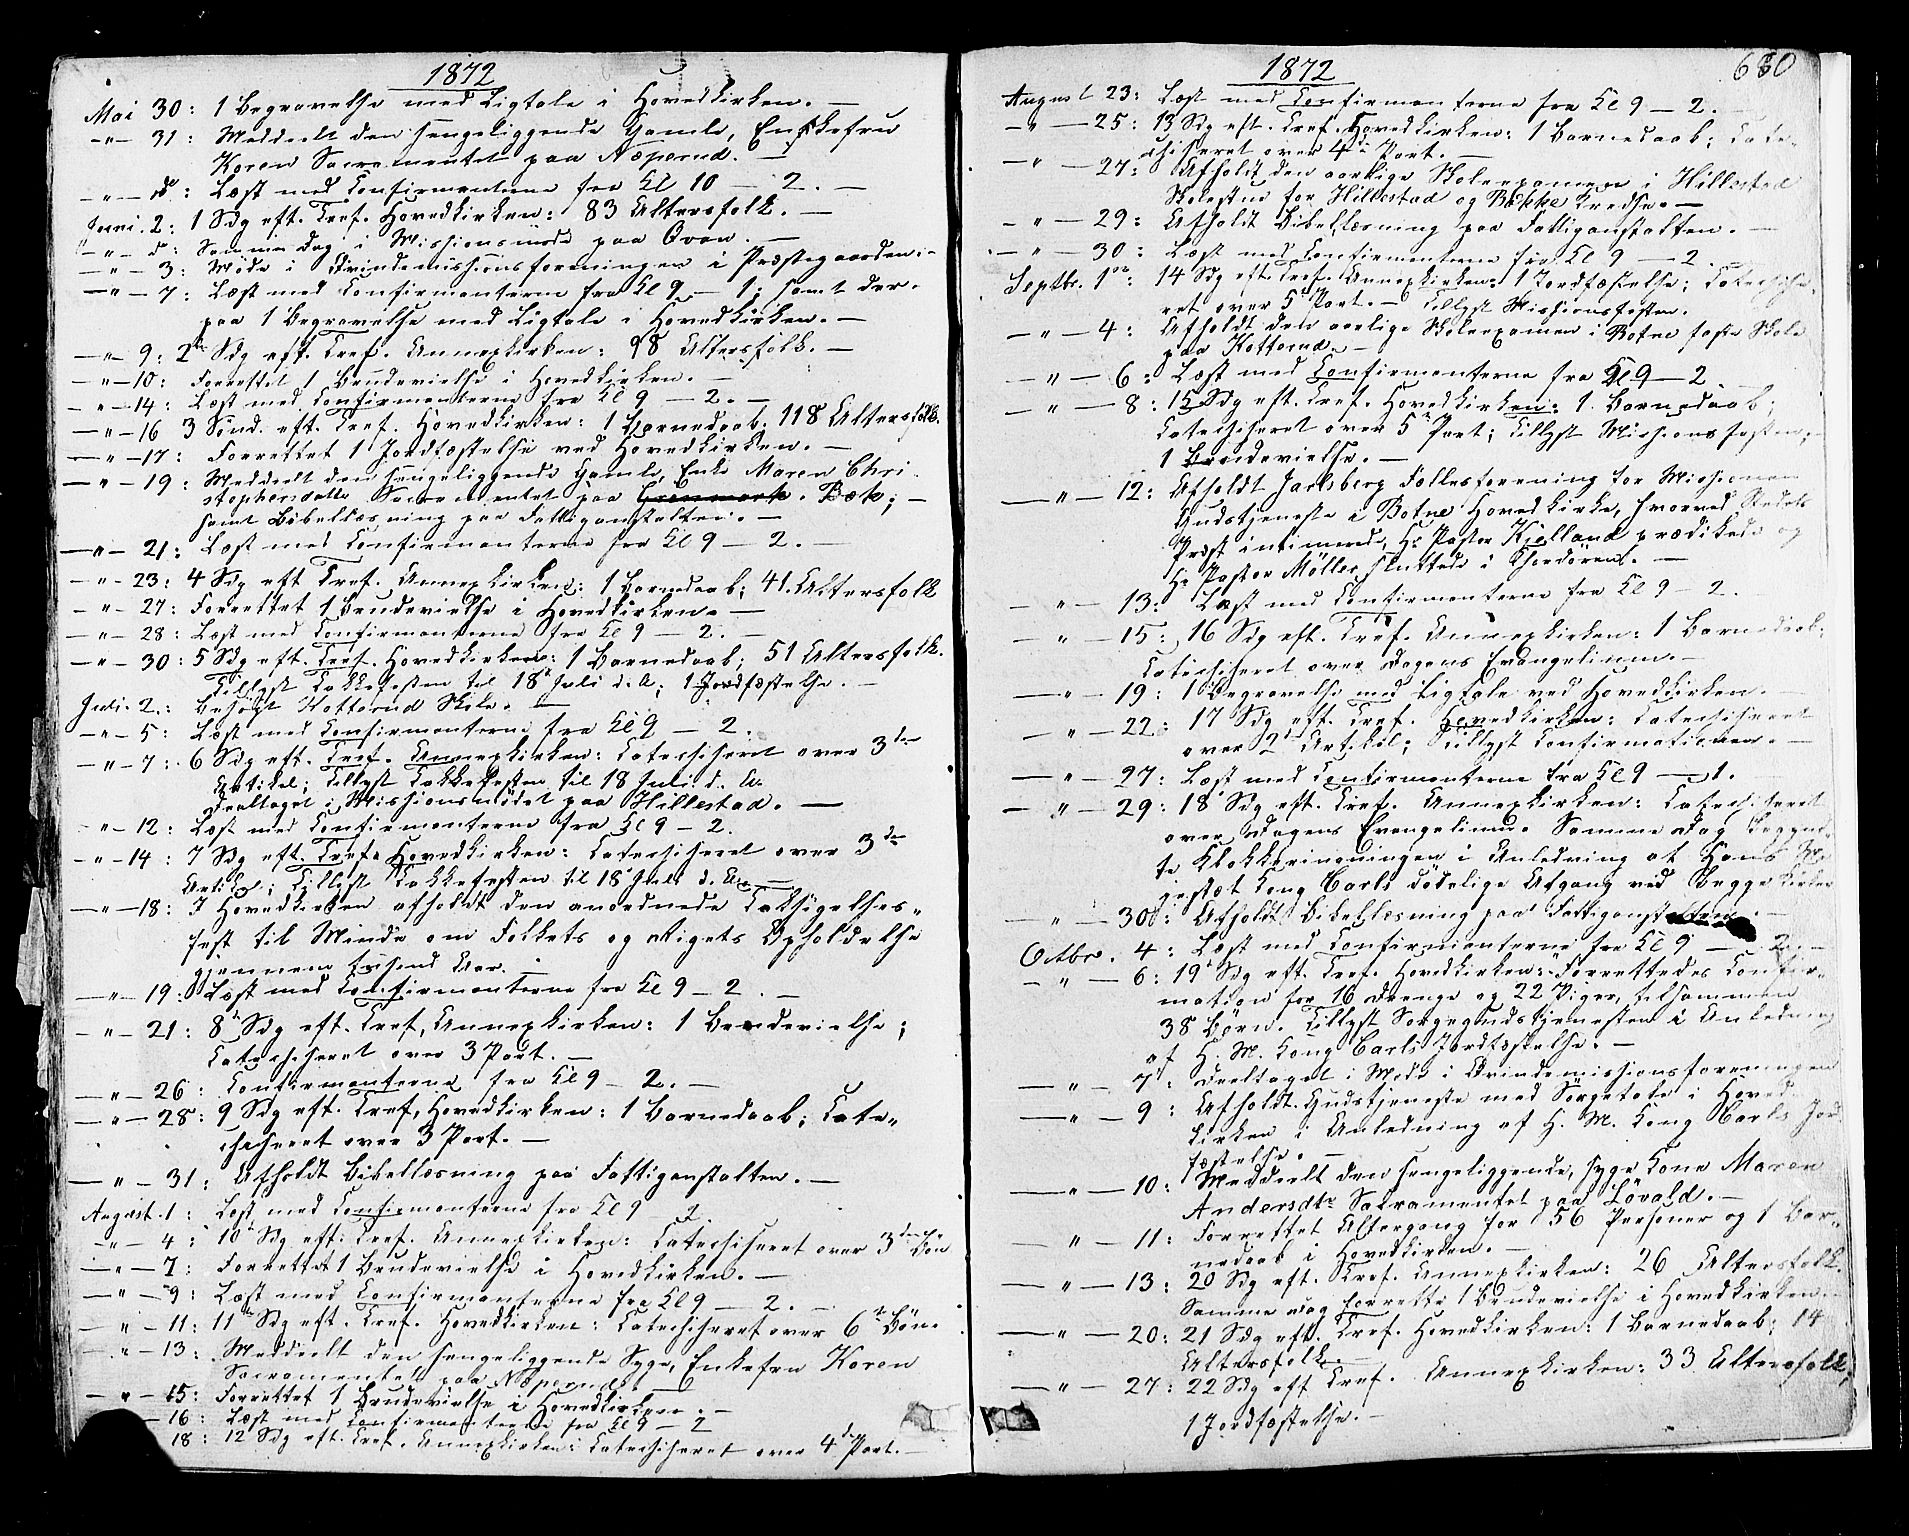 1872
Mai 30: 1 Begravelse med Ligtale i Hovedkirken. —
—"— 31: Meddeelt den sengeliggende Gamle, Enkefru
Koren Sacramentet paa Næperud. —
—"— do: Læst med Confirmanterne fra Kl 10 — 2. —
Juni. 2: 1 Sdg eft. Tref. Hovedkirken: 83 Altersfolk. —
"— d: Samme Dag i Missionsmøde paa Oron. —
—"— 3: Møde i Qvindemissionsforeningen i Præstegaarden. —
—"— 7: Læst med Confirmanterne fra Kl 9 — 1; samt der-
paa 1 Begravelse med Ligtale i Hovedkirken. —
—"— 9: 2 Sdg eft. Tref. Annexkirken: 98 Altersfolk. —
—"— 10: Forrettet 1 Brudevielse i Hovedkirken. —
—"— 14: Læst med Confirmanterne fra Kl 9 — 2. —
—"— 16 3 Sønd. eft. Tref. Hovedkirken: 1 Barnedaab. 118 Altersfolk.
—"— 17: Forrettet 1 Jordfæstelse ved Hovedkirken. —
—"— 19: Meddeelt den sengeliggende Gamle, Enke Maren Chri-
stophersdatte Sacramentet paa Grønmark. Bæk; —
samt Bibellæsning paa Fattiganstalten. —
—"— 21: Læst med Confirmanterne fra Kl 9 — 2. —
—"— 23: 4 Sdg eft Tref. Annexkirken: 1 Barnedaab; 41 Altersfolk
—"— 27: Forrettet 1 Brudevielse i Hovedkirken. —
—"— 28: Læst med Confirmanterne fra Kl 9 — 2. —
—"— 30: 5 Sdg eft. Tref. Hovedkirken: 1 Barnedaab; 51 Altersfolk.
Tillyst Takkefesten til 18 Juli d. A; 1 Jordfæstelse. —
Juli. 2.: Besøgt Kotterud Skole. —
—"— 5: Læst med Confirmanterne fra Kl 9 — 2.
—"— 7: 6 Sdg eft. Tref. Annexkirken: Catechiseret over 3die
Artikel; Tillyst Takkefesten til 18 Juli d. A.
Deeltaget i Missionsmødet paa Hillestad. —
—"— 12: Læst med Confirmanterne fra Kl 9 — 2.
—"— 14: 7 Sdg eft. Tref. Hovedkirken: Catechiseret over 3die
Artikel; Tillyst Takkefesten til 18 Juli d. A. —
—"— 18: I Hovedkirken afholdt den anordnede Taksigelses-
fest til Minde om Folkets og Rigets Opholdelse
gjennem tusend Aar. —
—"— 19: Læst med Confirmanterne fra Kl 9 — 2. —
—"— 21: 8 Sdg eft. Tref. Annexkirken: 1 Brudevielse;
Catechiseret over 3 Part. —
—"— 26: Confirmanterne fra Kl 9 — 2. —
—"— 28: 9 Sdg eft. Tref. Hovedkirken: 1 Barnedaab; Cate-
chiseret over 3 Part. —
—"— 31: Afholdt Bibellæsning paa Fattiganstalten. —
August. 1: Læst med Confirmanterne fra Kl 9 2
—"— 4: 10 Sdg eft. Tref. Annexkirken: Catechiseret over 3die Bøn
—"— 7: Forrettet 1 Brudevielse i Hovedkirken. —
—"— 9: Læst med Confirmanterne fra Kl 9 — 2. —
—"— 11: 11 Sdg eft. Tref. Hovedkirken: Catechiseret over 6 Bøn.
—"— 13: Meddeelt den sengeliggende Syge, Enkefru Koren
Sacramentet paa Næperud. —
—"— 15: Forrettet 1 Brudevielse i Hovedkirken. —
— 16: Læst med Confirmanterne fra Kl 9 — 2
18: 12 Sdg eft. Tref. Annexkirken: Catechiseret over 4de Part. —
1872
680
August 23: Læst med Confirmanterne fra Kl 9 — 2. —
—"— 25: 13 Sdg eft. Tref. Hovedkirken: 1 Barnedaab; Cate-
chiseret over 4 Part. —
—"— 27: Afholdt den aarlige Skoleexamen i Hillestad
Skolestue for Hillestad og Bakke Kredse. —
—"— 29: Afholdt Bibellæsning paa Fattiganstalten. —
—"— 30: Læst med Confirmanterne fra Kl 9 — 2. —
Septbr. 1: 14 Sdg eft. Tref. Annexkirken: 1 Jordfæstelse; Catechise-
ret over 5 Part. — Tillyst Missionsfesten.
—"— 4: Afholdt den aarlige Skoleexamen i Botne faste Skole
paa Kotterud. —
—"— 6: Læst med Confirmanterne fra Kl 9 — 2.
—"— 8: 15 Sdg eft. Tref. Hovedkirken: 1 Barnedaab;
Catechiseret over 5 Part; Tillyst Missionsfesten;
1 Brudevielse. —
—"— 12: Afholdt Jarlsberg Fællesforening for Missionen
Gudstjeneste i Botne Hovedkirke, hvorved Stedets
Præst intimerede, Hr Pastor Kielland prædikede og
Hr Pastor Möller sluttede i Chordøren. —
—"— 13: Læst med Confirmanterne fra Kl 9 — 2.
—"— 15: 16 Sdg eft. Tref. Annexkirken: 1 Barnedaab;
Catechiseret over Dagens Evangelium. —
—"— 19: 1 Begravelse med Ligtale ved Hovedkirken. —
—"— 22: 17 Sdg eft. Tref. Hovedkirken: Catechiseret
over 2 Artikel; Tillyst Confirmationen. —
—"— 27: Læst med Confirmanterne fra Kl 9 — 1.
—"— 29: 18 Sdg eft. Tref. Annexkirken: Catechiseret
over Dagens Evangelium. Samme Dag begynd-
te Klokkeringningen i Anledning af Hans Ma-
jestæt Kong Carls dödelige Afgang ved begge Kirker
—"— 30: Afholdt Bibellæsning paa Fattiganstalten. —
Octbr. 4: Læst med Confirmanterne fra Kl 9 — 2. —
—"— 6: 19 Sdg eft. Tref. Hovedkirken: Forrettedes Confir-
mation for 16 Drenge og 22 Piger, tilsammen
38 Børn. Tillyst Sørgegudstjenesten i Anledning
af H. M. Kong Carls Jordfæstelse. —
—"— 7: Deeltaget i Møde i Qvindemissionsforeningen
—"— 9: Afholdt Gudstjeneste med Sørgetale i Hoved-
kirken i Anledning af H. M. Kong Carls Jord
fæstelse. —
—"— 10: Meddeelt den sengeliggende, syge Kone Maren
Andersdtr Sakramentet paa Løvald. —
—"— 11: Forrettet Altergang for 56 Personer og 1 Bar-
nedaab i Hovedkirken. —
—"— 13: 20 Sdg eft. Tref. Annexkirken: 26 Altersfolk.
Samme Dag forrette 1 Brudevielse i Hovedkirken.
—"— 20: 21 Sdg eft. Tref. Hovedkirken: 1 Barnedaab; 14
Altersfolk. —
—"— 27: 22 Sdg eft Tref. Annexkirken: 33 Altersfolk;
1 Jordfæstelse. —